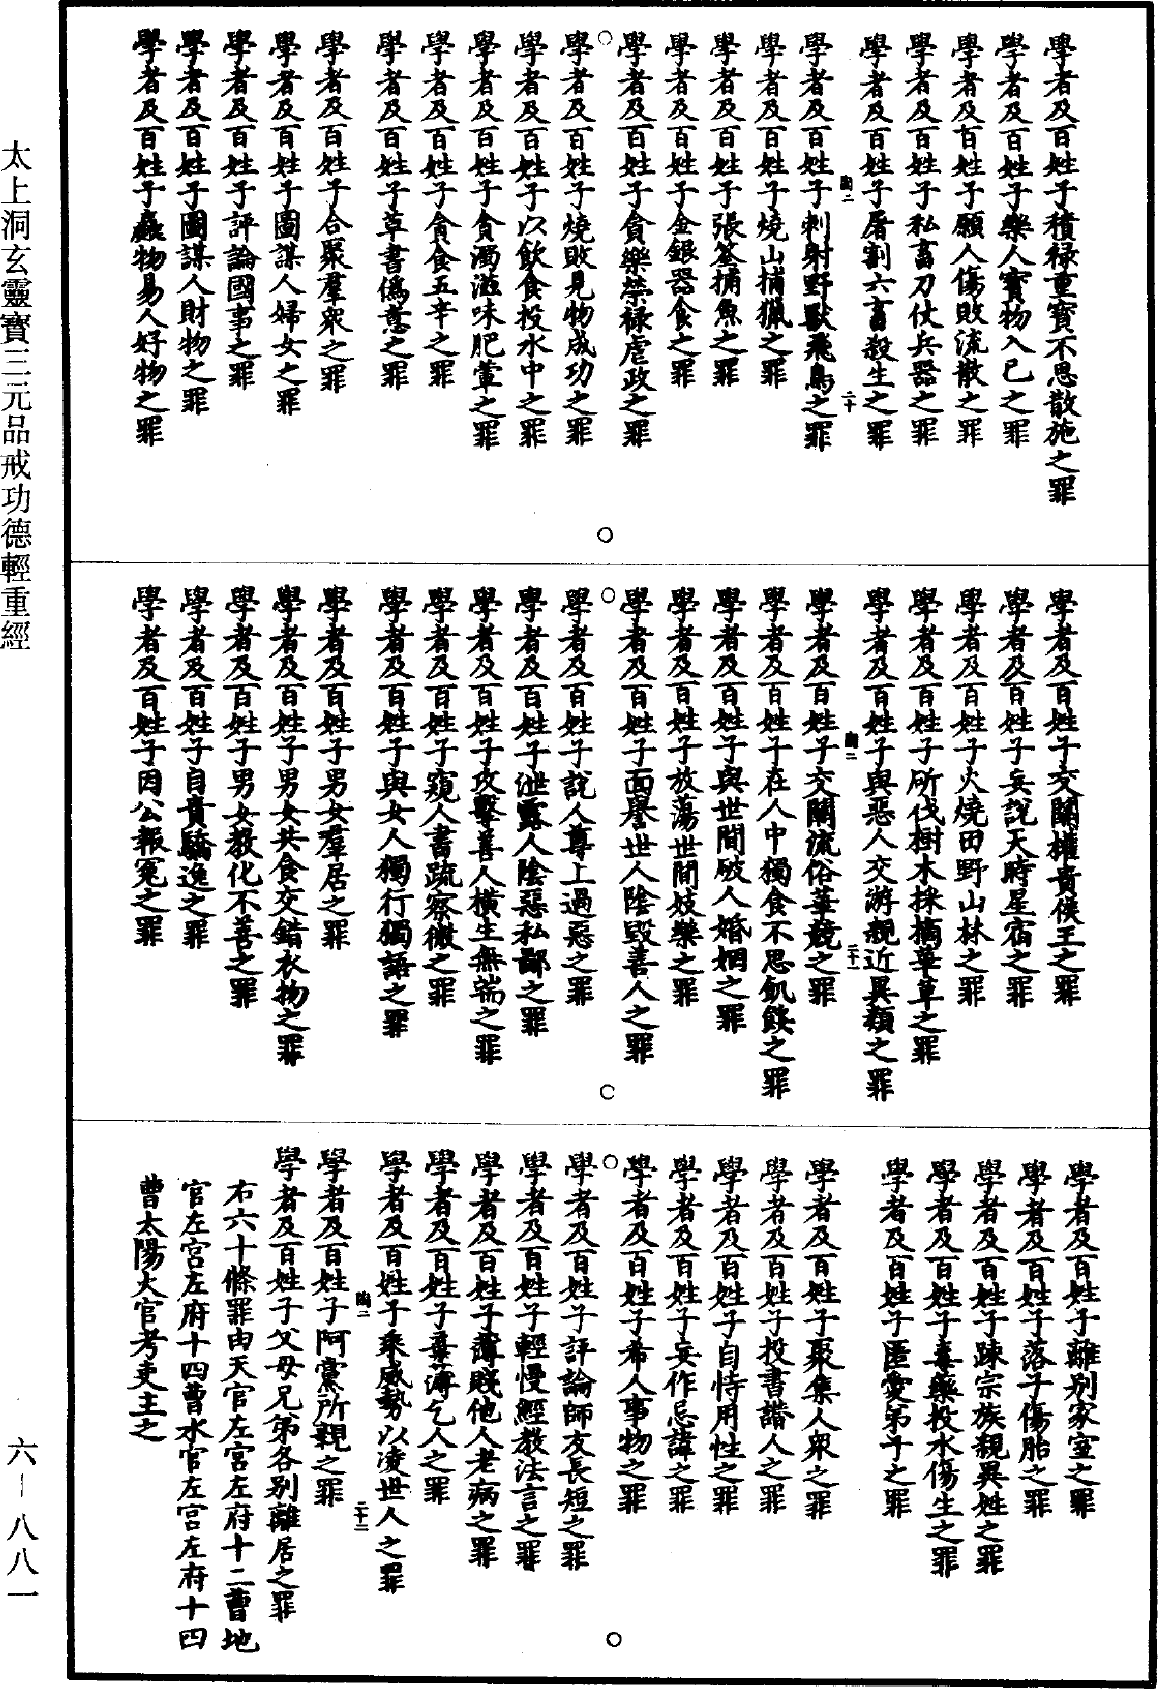 太上洞玄靈寶三元品戒功德輕重經
六－八八一
學者及百姓子積祿重寶不思散施之罪
學者及百姓子樂人寶物入己之罪
學者及百姓子願人傷敗流散之罪
學者及百姓子私畜刀仗兵器之罪
學者及百姓子屠割六畜殺生之罪
陶二
二十
學者及百姓子刺射野獸飛鳥之罪
學者及百姓子燒山捕獵之罪
學者及百姓子張筌捕魚之罪
學者及百姓子金銀器食之罪
學者及百姓子貪樂榮祿虐政之罪
學者及百姓子燒敗見物成功之罪
學者及百姓子以飲食投水中之罪
學者及百姓子貪濁滋味肥葷之罪
學者及百姓子貪食五辛之罪
學者及百姓子草書僞意之罪
學者及百姓子合聚羣衆之罪
學者及百姓子圖謀人婦女之罪
學者及百姓子評論國事之罪
學者及百姓子圖謀人財物之罪
學者及百姓子麤物易人好物之罪
學者及百姓子交關權貴侯王之罪
學者及百姓子妄說天時星宿之罪
學者及百姓子火燒田野山林之罪
學者及百姓子斫伐樹木採摘華草之罪
學者及百姓子與惡人交游親近異類之罪
陶二
二十一
學者及百姓子交關流俗華競之罪
學者及百姓子在人中獨食不思飢餒之罪
學者及百姓子與世間破人婚姻之罪
學者及百姓子放蕩世間妓樂之罪
學者及百姓子面譽世人陰毀善人之罪
學者及百姓子說人尊上過惡之罪
學者及百姓子泄露人陰惡私鄙之罪
學者及百姓子攻擊善人橫生無端之罪
學者及百姓子窺人書疏察微之罪
學者及百姓子與女人獨行獨語之罪
學者及百姓子男女羣居之罪
學者及百姓子男女共食交錯衣物之罪
學者及百姓子男女教化不善之罪
學者及百姓子自貴驕逸之罪
學者及百姓子因公報冤之罪
學者及百姓子離別家室之罪
學者及百姓子落子傷胎之罪
學者及百姓子踈宗族親異姓之罪
學者及百姓子毒藥投水傷生之罪
學者及百姓子匿愛弟子之罪
學者及百姓子聚集人衆之罪
學者及百姓子投書譖人之罪
學者及百姓子自恃用性之罪
學者及百姓子妄作忌諱之罪
學者及百姓子希人事物之罪
學者及百姓子評論師友長短之罪
學者及百姓子輕慢經教法言之罪
學者及百姓子薄賤他人老病之罪
學者及百姓子棄薄乞人之罪
學者及百姓子乘威勢以凌世人之罪
陶二
二十二
學者及百姓子阿黨所親之罪
學者及百姓子父母兄弟各别離居之罪
右六十條罪由天官左宮左府十二曹地
官左宮左府十四曹水官左宮左府十四
曹太陽火官考吏主之